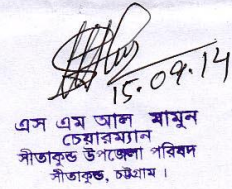 15.09.14
এস এম আল মামুন
চেয়ারম্যান
সীতাকুন্ড উপজেলা পরিষদ
সীতাকুন্ড, চট্টগ্রাম ।